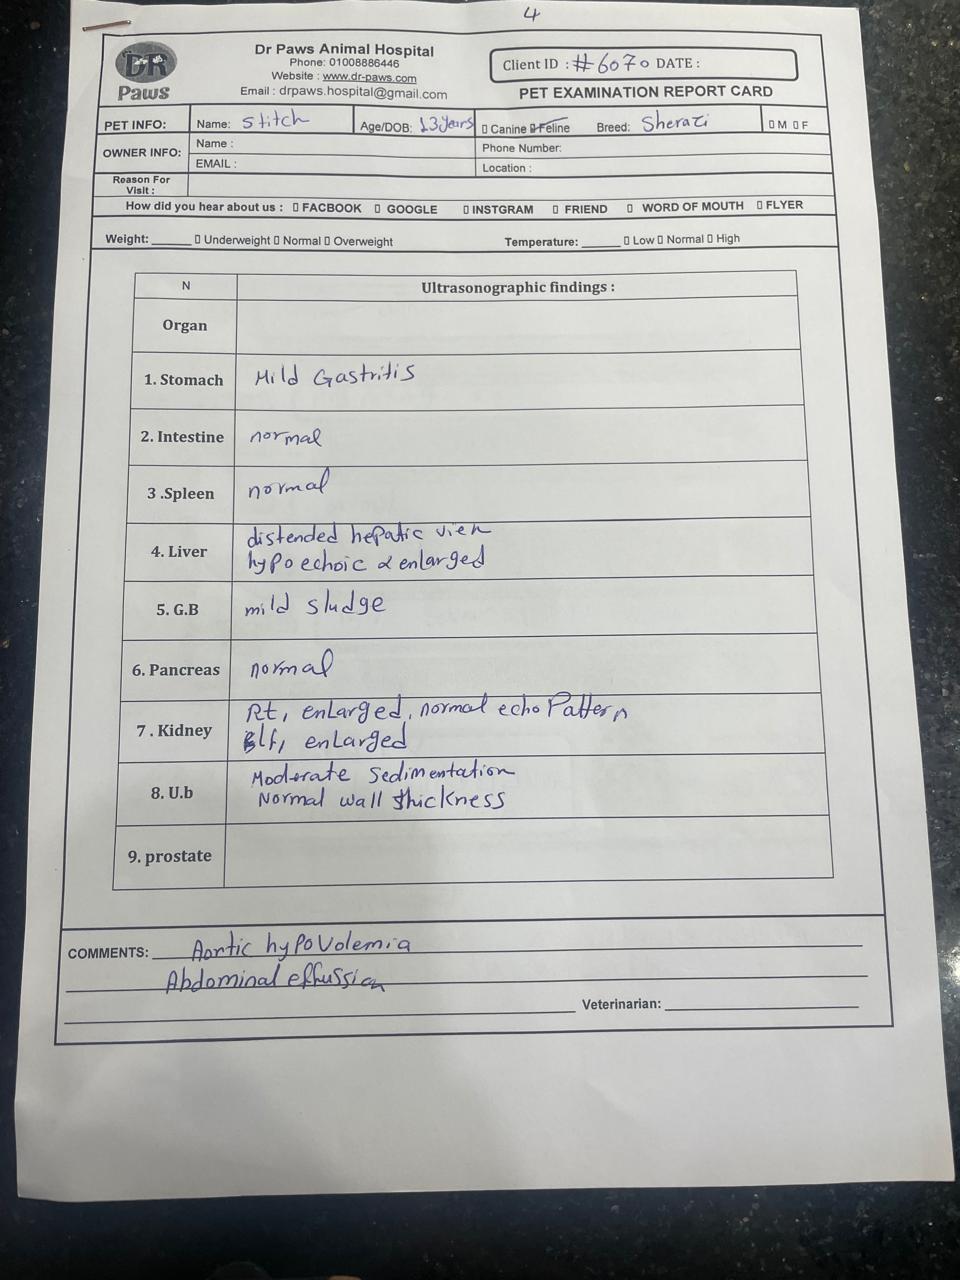 4
DR
Paws
Dr Paws Animal Hospital
Phone: 01008886446
Website : www.dr-paws.com
Email : drpaws.hospital@gmail.com
Client ID : #6070 DATE :
PET EXAMINATION REPORT CARD
PET INFO: Name: Stitch Age/DOB: 13 years Canine Feline Breed: Sherazi M F
OWNER INFO: Name : Phone Number:
EMAIL : Location :
Reason For Visit :
How did you hear about us : FACBOOK GOOGLE INSTGRAM FRIEND WORD OF MOUTH FLYER
Weight: Underweight Normal Overweight Temperature: Low Normal High
N Ultrasonographic findings :
Organ
1. Stomach Mild Gastritis
2. Intestine normal
3 .Spleen normal
4. Liver distended hepatic vien
hypoechoic & enlarged
5. G.B mild sludge
6. Pancreas normal
7 . Kidney Rt, enlarged, normal echo Pattern
lf, enlarged
8. U.b Moderate Sedimentation
Normal wall thickness
9. prostate
COMMENTS: Aortic hypovolemia
Abdominal effussion
Veterinarian: